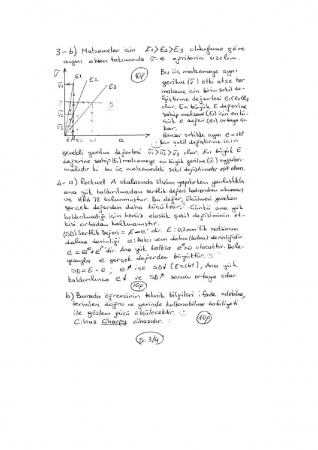 3-b) Malzemeler için E1>E2>E3 olduğuna göre
aynı eksen takımında σ-ε eğrilerini çizelim.
10p
Bu üç malzemeye aynı
gerilme (σ) etki etse her
malzeme için birim şekil de-
ğiştirme değerleri
olur. En büyük E değerine
sahip malzeme (E1) için en kü-
çük ε değeri (ε1) ortaya çı-
kar.
Benzer şekilde aynı ε=sbt
bir şekil değiştirme için
gerekli gerilme değerleri σ1>σ2>σ3 olur. En büyük E
değerine sahip (E1) malzemeye en büyük gerilme (σ1) uygulan-
malıdır ki bu üç malzemedeki şekil değiştirmeler eşit olsun.
4-a) Rockwell A skalasında ölçüm yapılırken yanlışlıkla
ana yük kaldırılmadan sertlik değeri kadrandan okunmuş
ve HRA 78 bulunmuştur. Bu değer, ölçülmesi gereken
gerçek değerden daha düşüktür. Çünkü ana yük
kaldırılmadığı için henüz elastik şekil değişiminin et-
kisi ortadan kalkmamıştır.
(SD) Sertlik Değeri = E-e' dir. E: 0,2 mm'lik
dalma derinliği e: batıcı ucun dalma (batma) derinliğidir.
dir. Ana yük kalksa olacaktır. Dola-
yısıyla e gerçek değerden büyüktür.
SD = E-e ; e↗ ise SD↓ (E=sbt), Ana yük
kaldırılınca e↓ ve SD↗ sonucu ortaya çıkar.
10p
b) Burada öğrencinin teknik bilgileri ifade edebilme,
terimleri doğru ve yerinde kullanabilme kabiliyeti
ile gözlem gücü ölçülecektir.
Cihaz Charpy cihazıdır.
10p
S. 3/4